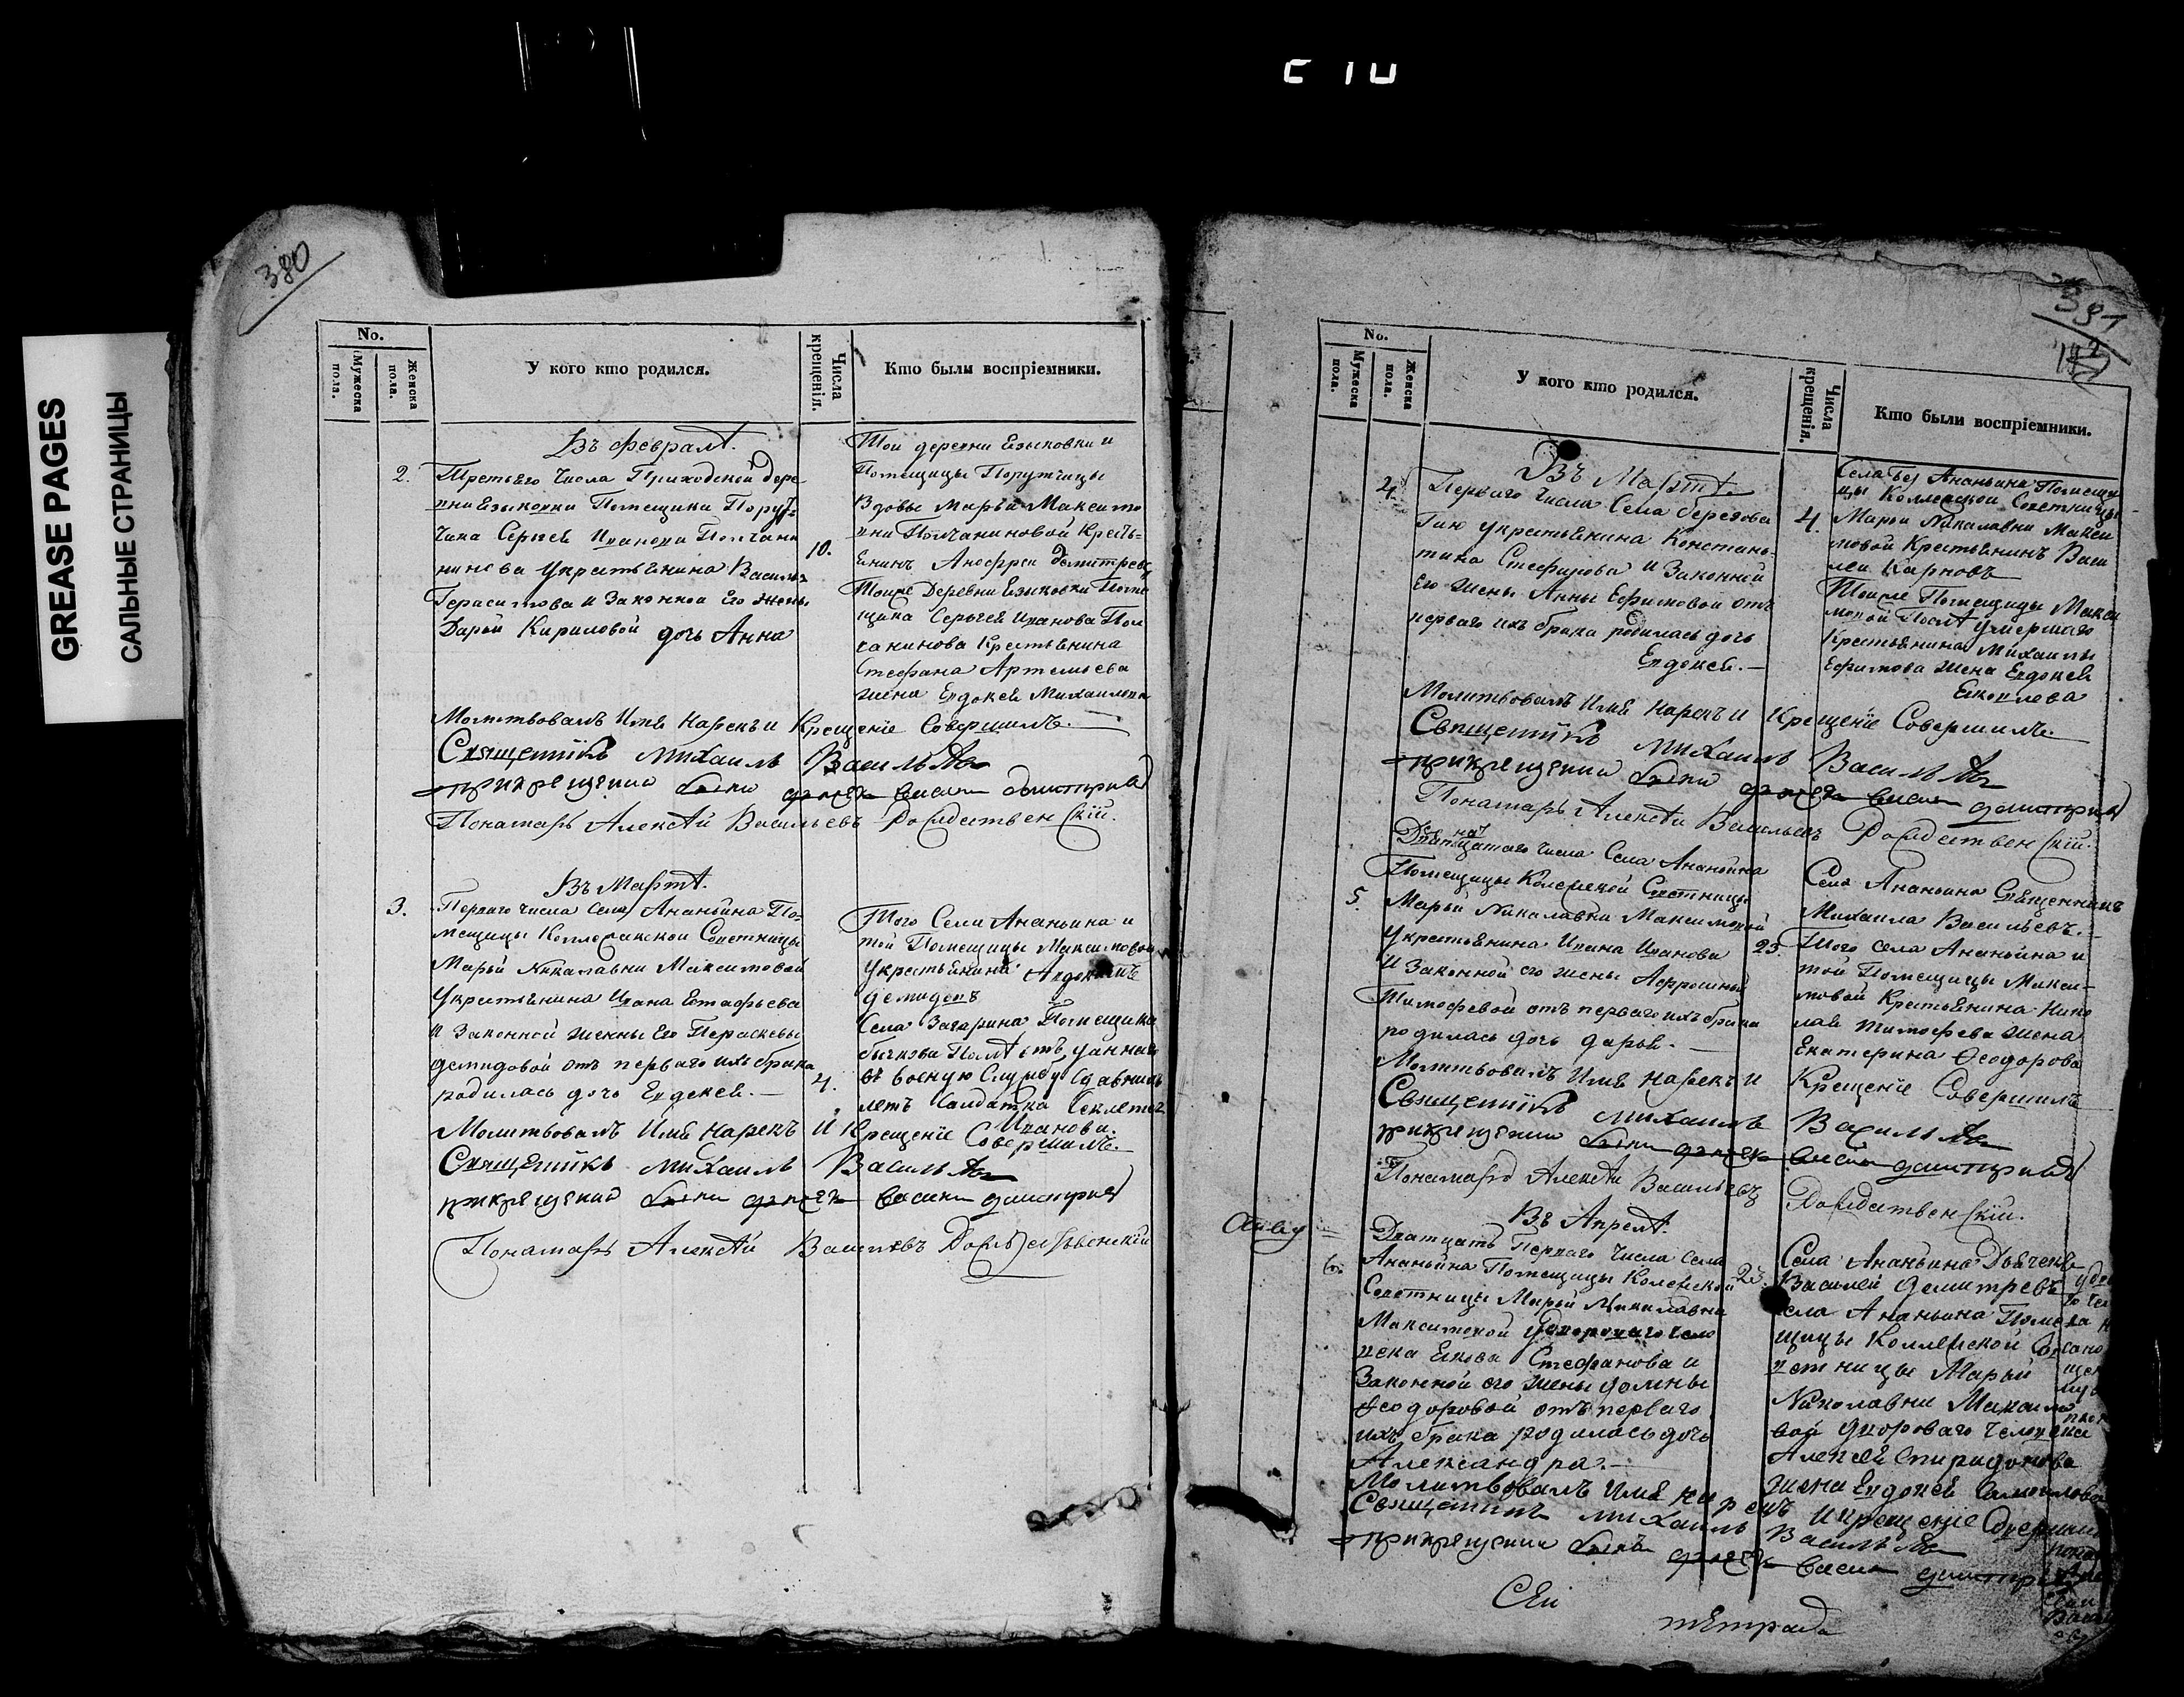 GREASE PAGES
САЛЬНЫЕ СТРАНИЦЫ
380
No.
Мужеска пола.
Женска пола.
У кого кто родился.
Числа крещенія.
Кто были воспріемники.
Въ февралѣ.
2.
Третьяго числа Приходской дере
вни Езыковки Помещика Пору
чика Сергея Иванова Полчани
нинова Укрестьянина Василья
Герасимова и Законной Его жены
Дарьи Кириловой дочь Анна
10.
Той деревни Езыковки и
Помещицы Порутчицы
Вдовы Марьи Максимо
вны Полчаниновой Кресть=
янинъ Анофреи Дмитрев
Тоиже Деревни Езыковки Поме
щика Сергея Иванова Пол
чанинова Крестьянина
Стефана Артемьева
жена Евдокея Михаилова
Молитвовалъ Имя Нарекъ и Крещеніе Совершилъ.
Священникъ Михаилъ Васильевъ
прикрещении были дьячекъ васили дмитриев
Понамарь Алексѣй Васильевъ Рождественскій.
Въ Мартѣ.
3.
Перваго числа Села Ананьина По-
мещицы Коллежской Советницы
Марьи Николавны Максимовой
Укрестьянина Ивана Естафьева
и Законной женны Его Пераскевы
Демидовой отъ перваго ихъ брака
родилась дочь Евдокея.
4.
Того Села Ананьина и
той Помещицы Максимовой
Укрестьянина Авдокимъ
Демидовъ
Села Захарина Помещика
Бычкова Послѣ отъданнаго
въ военую Службу
летъ Салдатка
Иванова.
Молитвовалъ Имя Нарекъ и Крещеніе Совершилъ.
Священникъ Михаилъ Васильевъ
прикрещении были дьячекъ васили дмитриев
Понамарь Алексѣй Васильевъ Рождественскій
No.
Мужеска пола.
Женска пола.
У кого кто родился.
Числа крещенія.
Кто были воспріемники.
Въ Мартѣ.
4.
Перваго числа Села
Укрестьянина Констань-
тина и Законной
Его жены Анны Ефимовой отъ
перваго ихъ брака родилась дочь
Евдокея.
4.
Села Ананьина Помещи
цы Коллежской Советницы
Марьи Николавны Макси
мовой Крестьянинъ Васи
леи Карповъ
Тоиже Помещицы Макси
мовой Послѣ Умершаго
Крестьянина Михаилы
Ефимова жена Евдокея
Яковлева
Молитвовалъ Имя Нарекъ и Крещеніе Совершилъ.
Священникъ Михаилъ Васильевъ
прикрещении были дьячекъ васили дмитриев
Понамарь Алексѣй Васильевъ Рождественскій.
5.
числа Села Ананьина
Помещицы Колежской Советницы
Марьи Николавны Максимовой
Укрестьянина Ивана Иванова
и Законной его жены Афросиньи
Тимофевой отъ перваго ихъ брака
родилась дочь Дарья.
25.
Села Ананьина Священникъ
Михаила Васильевъ.
Того села Ананьина и
той Помещицы Макси-
мовой Крестьянина Нико
лая Тимофева жена
Екатерина Ѳеодорова
Молитвовалъ Имя Нарекъ и Крещеніе Совершилъ
Священникъ Михаилъ Васильевъ
прикрещении были дьячекъ васили дмитриев
Понамарь Алексѣй Васильевъ Рождественскій.
Въ Апрелѣ.
6.
Дватцать Перваго числа Села
Ананьина Помещицы Колежской
Советницы Марьи Николавны
Максимовой Удвороваго чело
века Якова Стефанова и
Законной его жены Домны
Ѳеодоровой отъ перваго
ихъ брака родилась дочь
Александра.
23.
Села Ананьина Дьячекъ
Василей Дмитревъ
Села Ананьина Поме
щицы Коллежской Со
ветницы Марьи
Николавны Максимо
вой Двороваго человека
Алексея Спиридонова
жена Евдокея Самоилова
Молитвовалъ Имя Нарекъ и крещеніе Совершилъ
Священникъ Михаилъ Васильевъ
прикрещении были дьячекъ васили дмитриев
тетрада